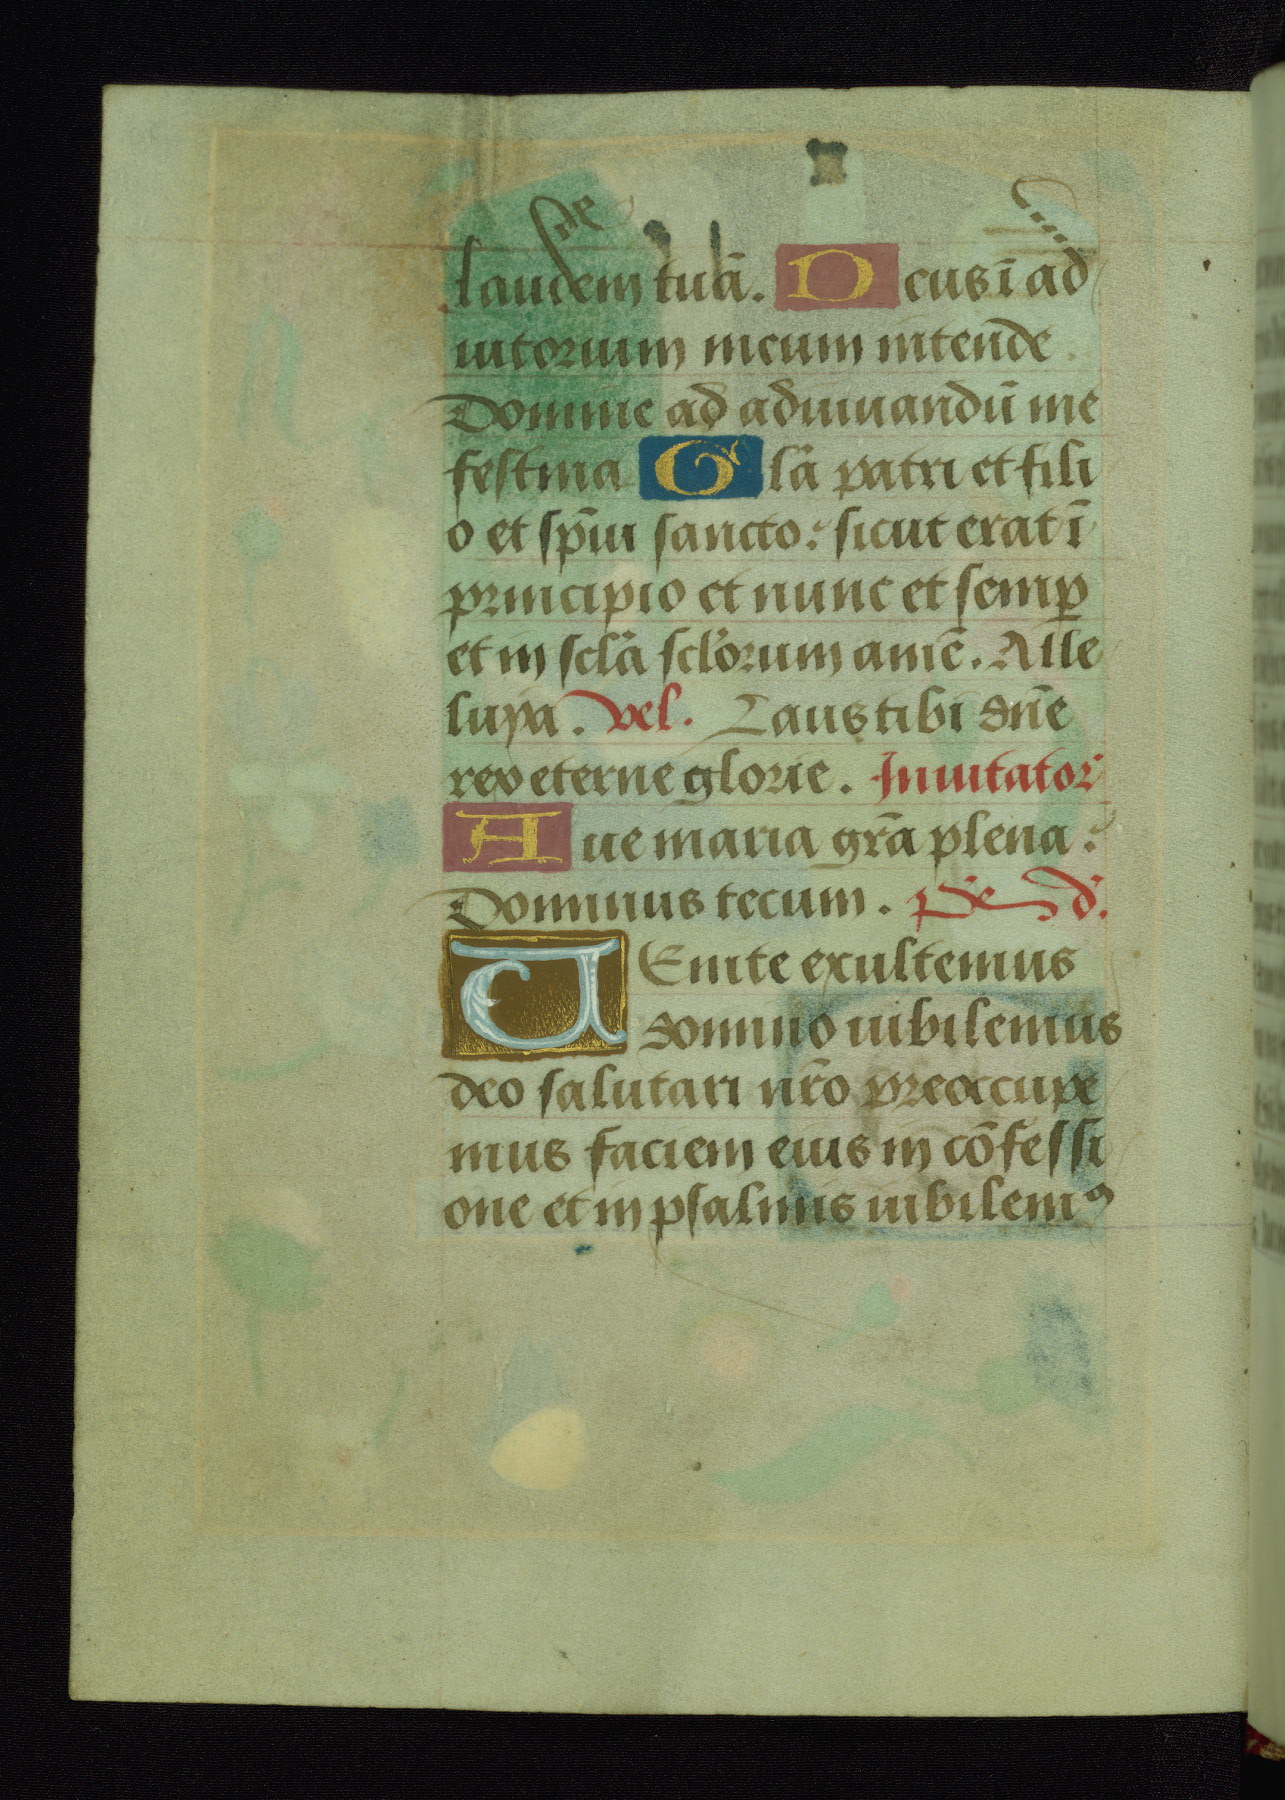 laudem tuā. Deus ī ad
iutorium meum intende
Domine ad adiuuandū me
festina Glā patri et fili
o et sp̄ui sancto: sicut erat ī
principio et nunc et semꝑ
et in sclā sclōrum amē. Alle
luya. vel. Laus tibi dn̄e
rex eterne glorie. Inuitator
Aue maria gr̄a plena:
Dominus tecum. p̄s d̄.
UEnite exultemus
domino iubilemus
deo salutari nr̄o preoccupe
mus faciem eius in cōfessi
one et in psalmis iubilemꝰ